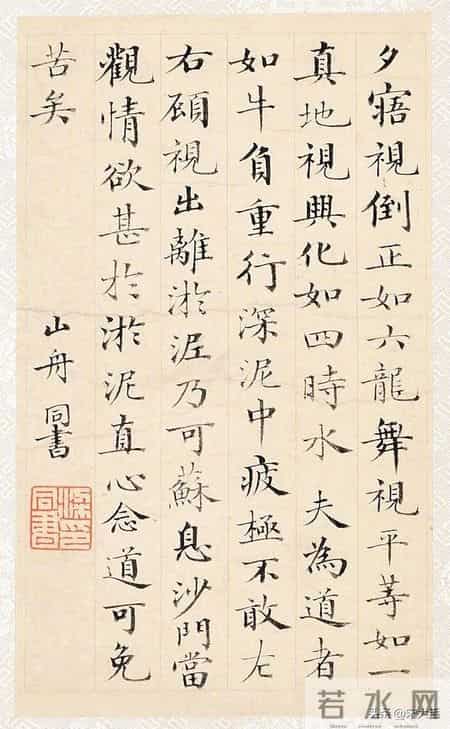 夕寤視倒正如六龍舞視平等如一
真地視興化如四時水 夫為道者
如牛負重行深泥中疲極不敢左
右顧視出離淤泥乃可蘇息沙門當
觀情欲甚於淤泥直心念道可免
苦矣
山舟同書
梁印同書
若水网